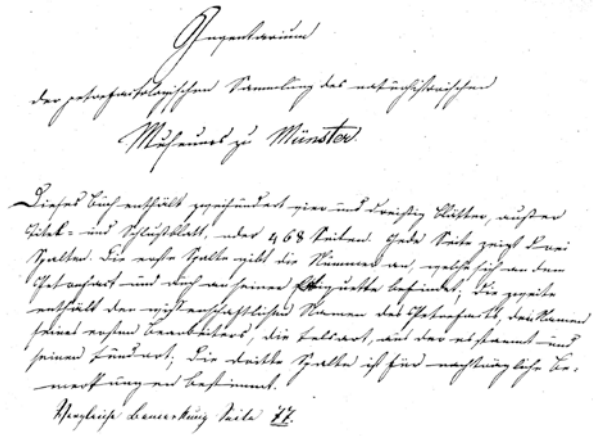 Inventarium
der petrefactologischen Sammlung des naturhistorischen
Museums zu Münster.
Dieses Buch enthält zweihundert vier und dreißig Blätter, außer
Titel- und Schlußblatt, oder 468 Seiten. Jede Seite zeigt drei
Spalten. Die erste Spalte gibt die Nummer an, welche sich an dem
Petrefact und auch an seiner Etiquette befindet; die zweite
enthält den wissenschaftlichen Namen des Petrefacts, den Namen
seines ersten Bearbeiters, die Felsart, aus der es stammt und
seinen Fundort; die dritte Spalte ist für nachträgliche Be-
merkungen bestimmt.
Vergleiche Bemerkung Seite 77.